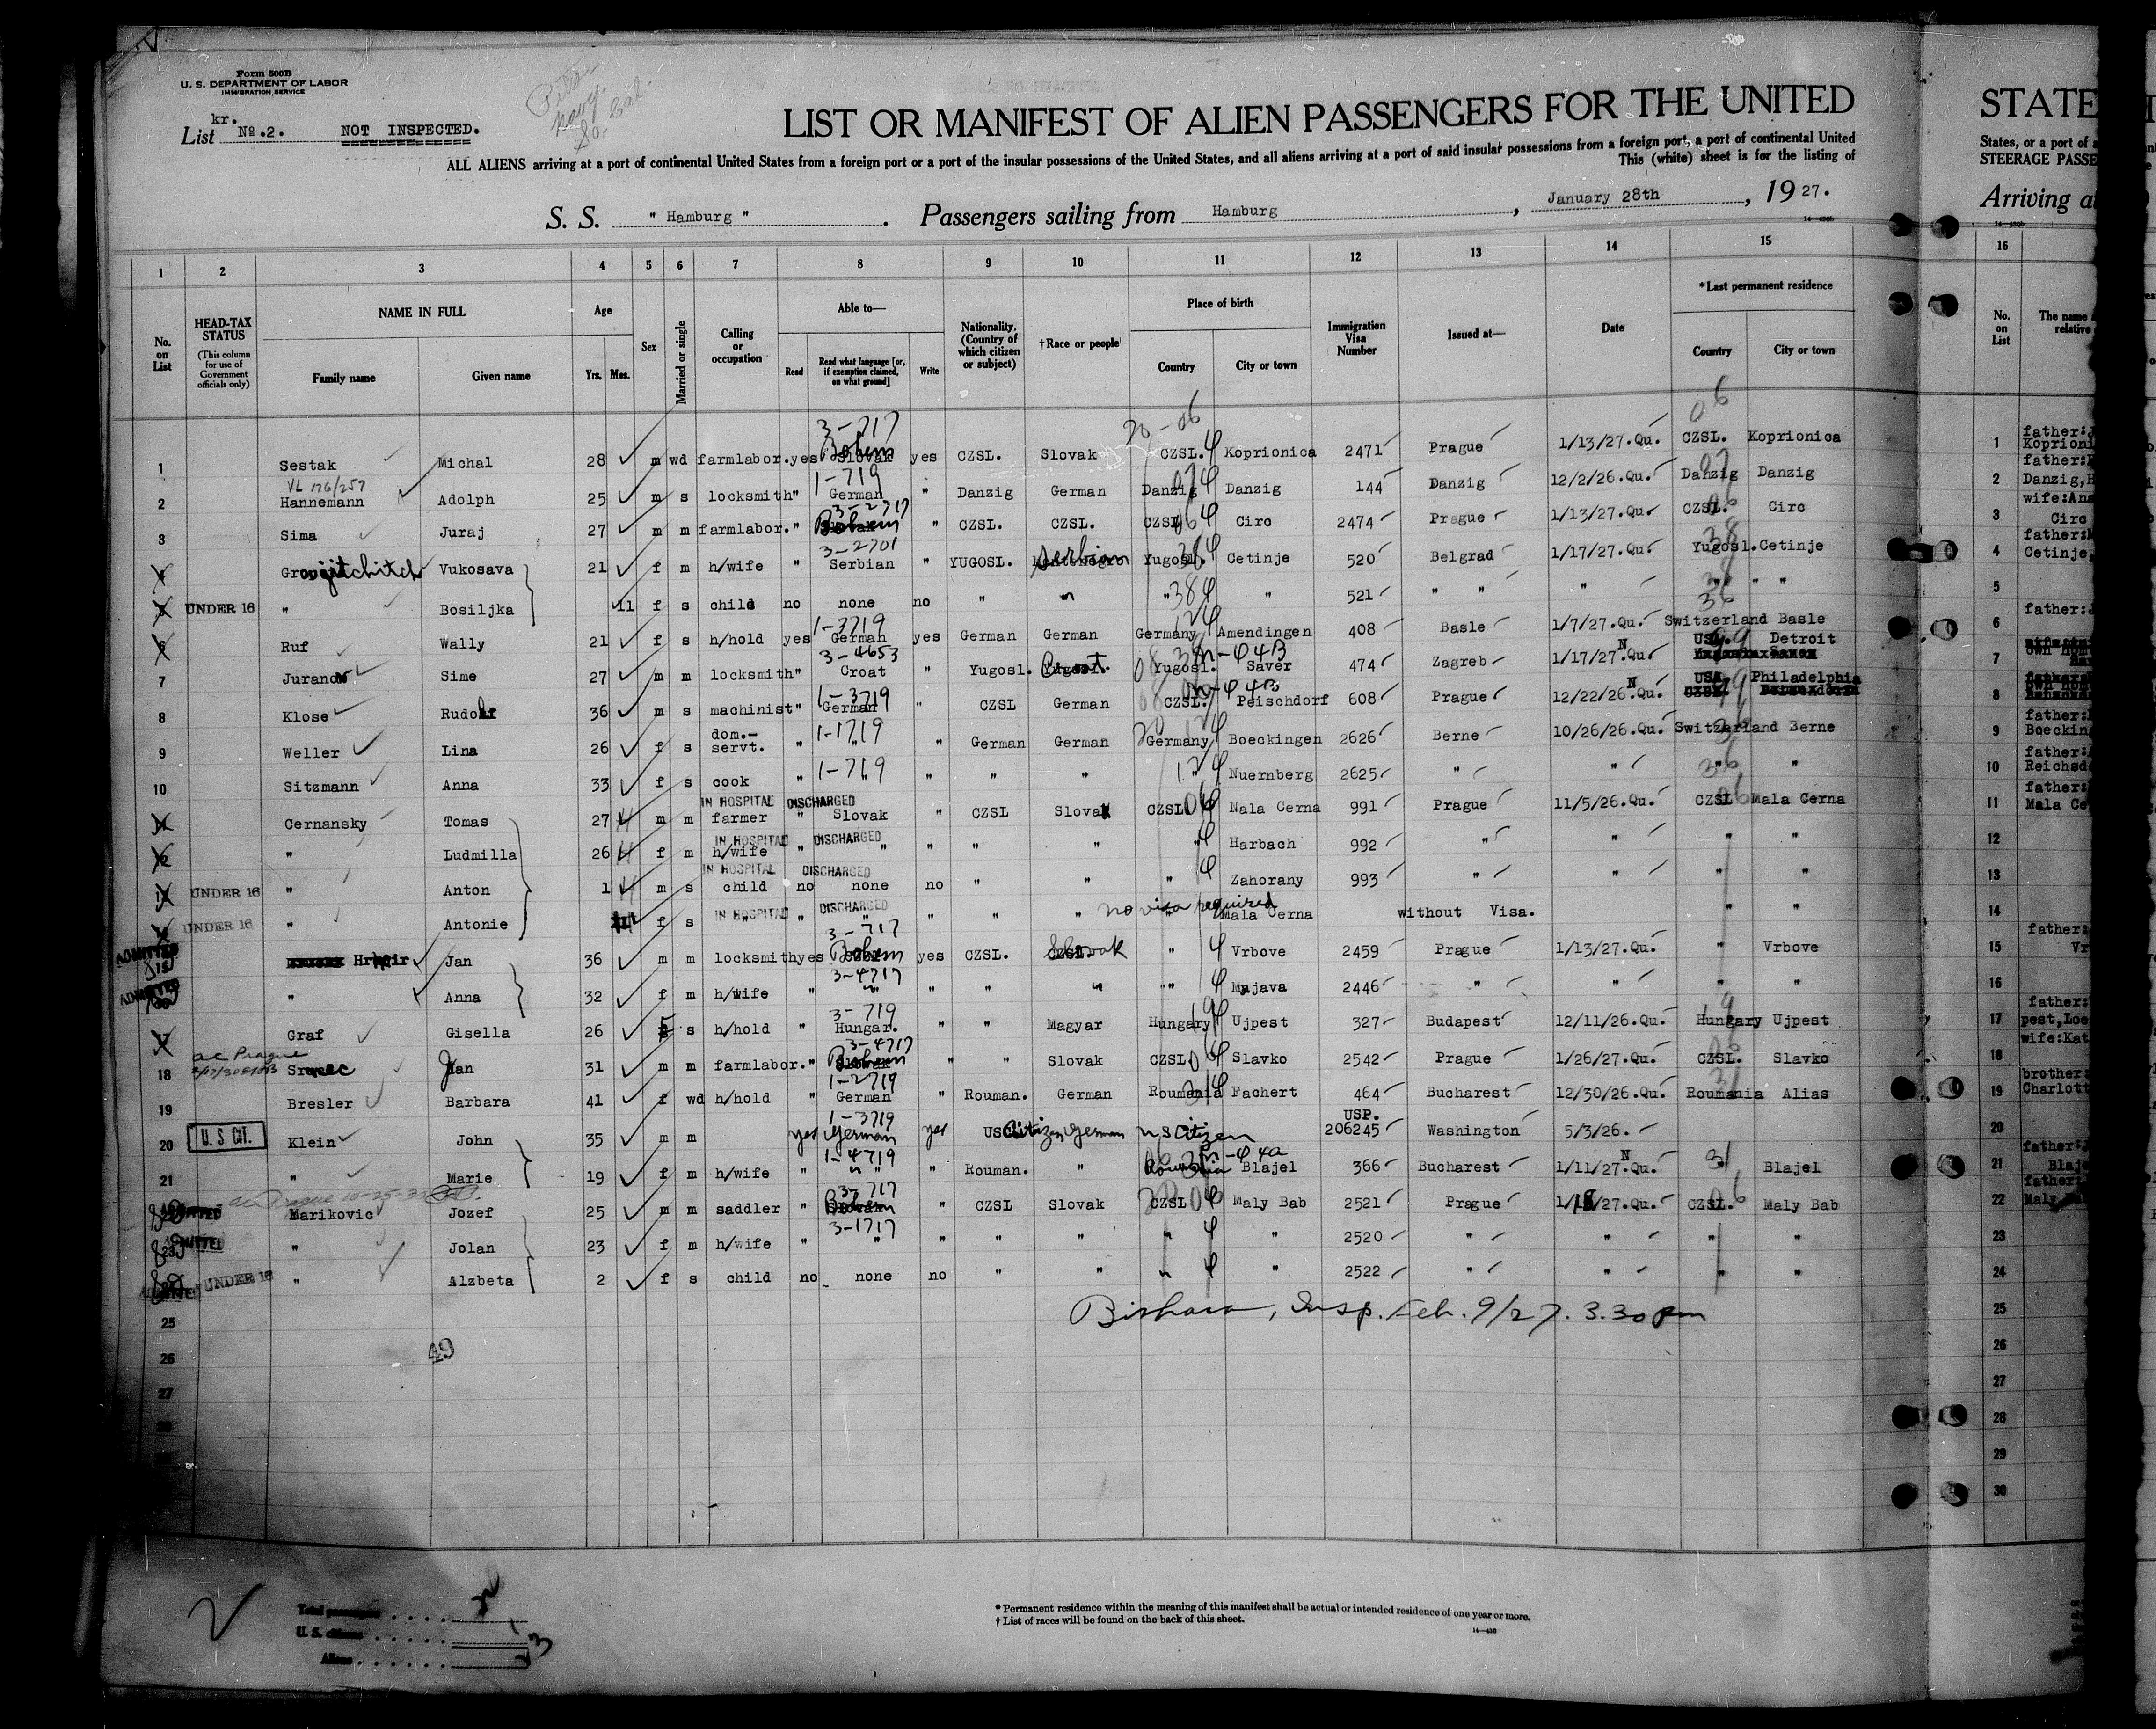 Form 500B
U. S. DEPARTMENT OF LABOR
IMMIGRATION SERVICE
kr.
List No.2. NOT INSPECTED.
LIST OR MANIFEST OF ALIEN PASSENGERS FOR THE UNITED
ALL ALIENS arriving at a port of continental United States from a foreign port or a port of the insular possessions of the United States, and all aliens arriving at a port of said insular possessions from a foreign port, a port of continental United
This (white) sheet is for the listing of
S. S. " Hamburg " . Passengers sailing from Hamburg , January 28th , 1927.
STATE
States, or a port of
STEERAGE PASSE
Arriving at
1 2 3 4 5 6 7 8 9 10 11 12 13 14 15 16
No. on List
HEAD-TAX STATUS
(This column for use of Government officials only)
NAME IN FULL
Family name Given name
Age
Yrs. Mos.
Sex
Married or single
Calling or occupation
Able to—
Read Read what language [or, if exemption claimed, on what ground] Write
Nationality. (Country of which citizen or subject)
†Race or people
Place of birth
Country City or town
Immigration Visa Number
Issued at—
Date
*Last permanent residence
Country City or town
No. on List
The name
relative
1 Sestak Michal 28 m wd farmlabor. yes 3-717 Bohem yes CZSL. Slovak CZSL. Koprionica 2471 Prague 1/13/27.Qu. CZSL. Koprionica
VL 176/257
2 Hannemann Adolph 25 m s locksmith " 1-719 German " Danzig German Danzig Danzig 144 Danzig 12/2/26.Qu. Danzig Danzig
3 Sima Juraj 27 m m farmlabor. " 3-2717 Bohem " CZSL. CZSL. CZSL Circ 2474 Prague 1/13/27.Qu. CZSL. Circ
4 Groujitchitch Vukosava 21 f m h/wife " 3-2701 Serbian " YUGOSL. Serbian Yugosl. Cetinje 520 Belgrad 1/17/27.Qu. Yugosl. Cetinje
5 UNDER 16 " Bosiljka 11 f s child no none no " " " " 521 " " " " " "
6 Ruf Wally 21 f s h/hold yes 1-3719 German yes German German Germany Amendingen 408 Basle 1/7/27.Qu. Switzerland Basle
7 Sime 27 m m locksmith " 3-4653 Croat " Yugosl. Croat Yugosl. Saver 474 Zagreb 1/17/27.Qu. N USA. Detroit
8 Klose Rudolf 36 m s machinist " 1-3719 German " CZSL German CZSL. Peischdorf 608 Prague 12/22/26.Qu. N USA. Philadelphia
9 Weller Lina 26 f s dom.-servt. " 1-1719 " " German German Germany Boeckingen 2626 Berne 10/26/26.Qu. Switzerland Berne
10 Sitzmann Anna 33 f s cook " 1-719 " " " " " Nuernberg 2625 " " " "
IN HOSPITAL DISCHARGED
11 Cernansky Tomas 27 m m farmer " Slovak " CZSL Slovak CZSL Nala Cerna 991 Prague 11/5/26.Qu. CZSL Mala Cerna
IN HOSPITAL DISCHARGED
12 " Ludmilla 26 f m h/wife " " " " " " Harbach 992 " " " "
IN HOSPITAL DISCHARGED
13 UNDER 16 " Anton 1 m s child no none no " " " Zahorany 993 " " " "
IN HOSPITAL DISCHARGED
14 UNDER 16 " Antonie f s " " " " " no visa required Mala Cerna without Visa. " "
ADMITTED
15 Jan 36 m m locksmith yes 3-717 Bohem yes CZSL. Slovak " Vrbove 2459 Prague 1/13/27.Qu. " Vrbove
ADMITTED
16 " Anna 32 f m h/wife " 3-4717 " " " " " Majava 2446 " " " "
17 Graf Gisella 26 f s h/hold " 3-719 Hungar. " " Magyar Hungary Ujpest 327 Budapest 12/11/26.Qu. Hungary Ujpest
ac Prague
18 Jan 31 m m farmlabor. " 3-4717 Bohem " " Slovak CZSL Slavko 2542 Prague 1/26/27.Qu. CZSL. Slavko
19 Bresler Barbara 41 f wd h/hold " 1-2719 German " Rouman. German Roumania Fachert 464 Bucharest 12/30/26.Qu. Roumania Alias
20 U.S CIT. Klein John 35 m m yes 1-3719 German yes US Citizen German US Citizen USP. 206245 Washington 5/3/26.
21 " Marie 19 f m h/wife " 1-4719 " " Rouman. " Roumania Blajel 366 Bucharest 1/11/27.Qu. N " Blajel
ADMITTED ac Prague
22 Marikovic Jozef 25 m m saddler " 3-717 " CZSL Slovak CZSL Maly Bab 2521 Prague 1/18/27.Qu. CZSL. Maly Bab
ADMITTED
23 " Jolan 23 f m h/wife " 3-1717 " " " " " " 2520 " " " "
24 UNDER 16 " Alzbeta 2 f s child no none no " " " " 2522 " " " "
25 Insp. Feb. 9/27. 3.30 pm
26 49
27
28
29
30
1 father:
Koprioni
2 father:
Danzig,
3 wife:Ana
Circ
4 father:
Cetinje,
5
6 father:
7 own hom
8 own hom
9 father:
Boeckin
10 father:
Reichsd
11 father:
Mala Ce
12
13
14
15 father:
Vr
16
17 father:
pest,Loe
18 wife:Kat
19 brother:
Charlott
20
21 father:
Blaj
22 father:
Maly
23
24
25
26
27
28
29
30
Total passengers
U. S. citizens
Aliens
* Permanent residence within the meaning of this manifest shall be actual or intended residence of one year or more.
† List of races will be found on the back of this sheet.
14—430